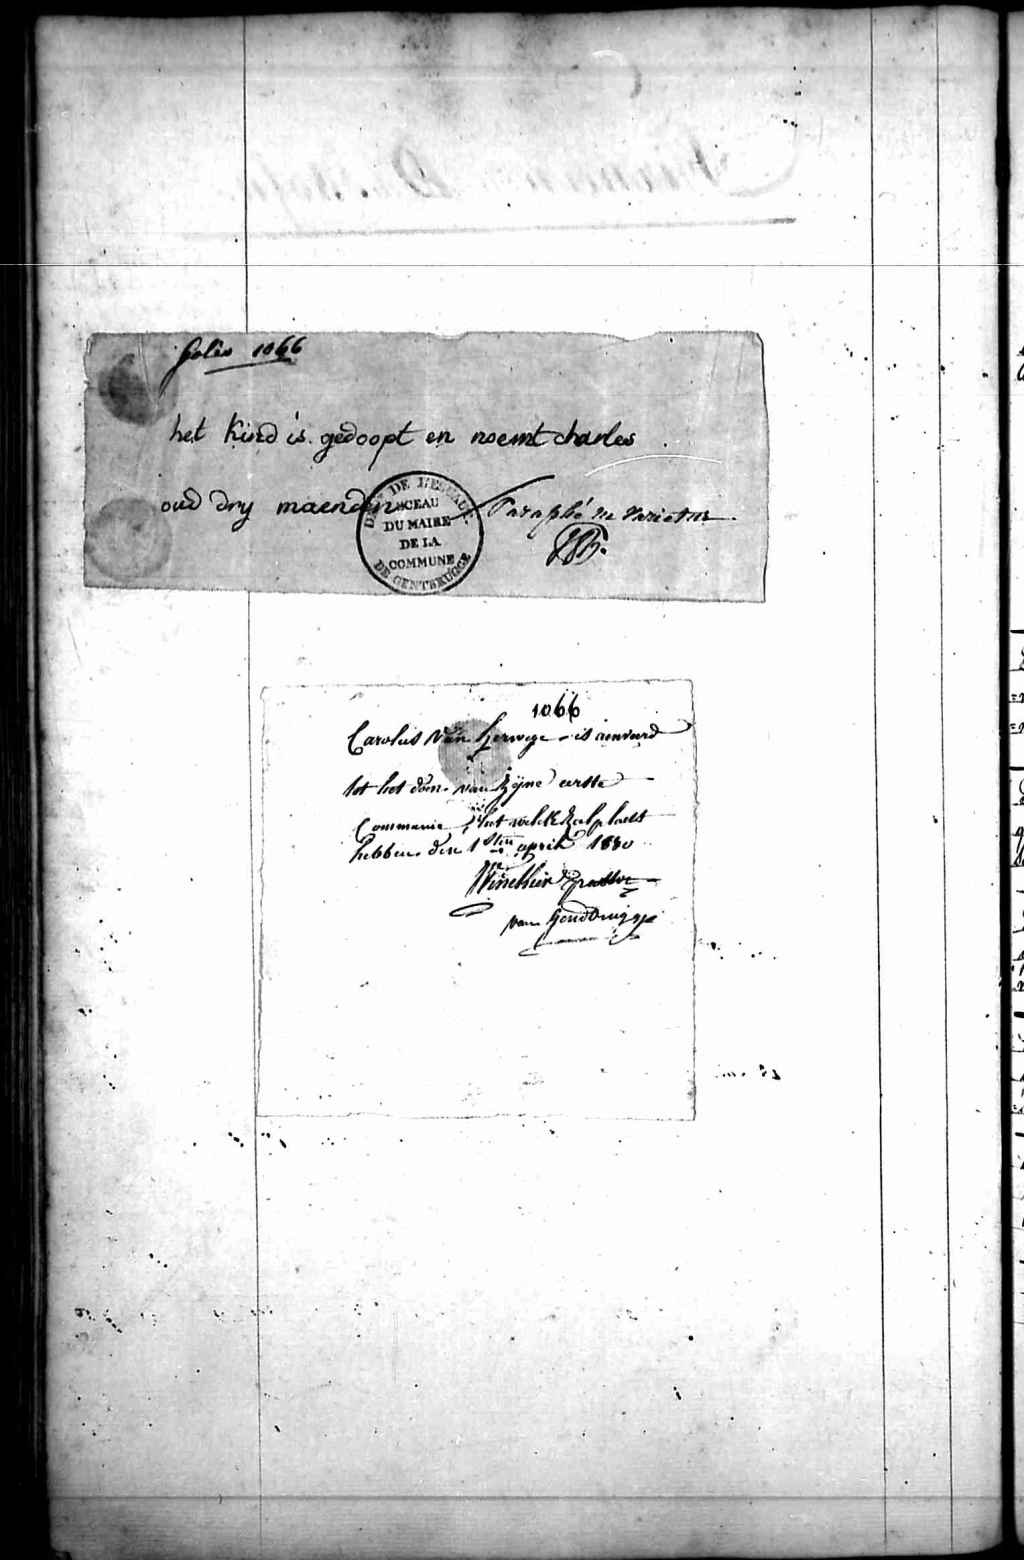 folio 1066
het kind is gedoopt en noemt charles
oud dry maenden
DEPT DE L'ESCAUT
SCEAU
DU MAIRE
DE LA
COMMUNE
DE GENTBRUGGE
Paraphé ne varietur
1066
Carolus Van herwege is aenveerd
tot het doen van zyne eerste
Communie, het welk zal plaets
hebben den 1sten april 1820
pastor
van Gendbrugge